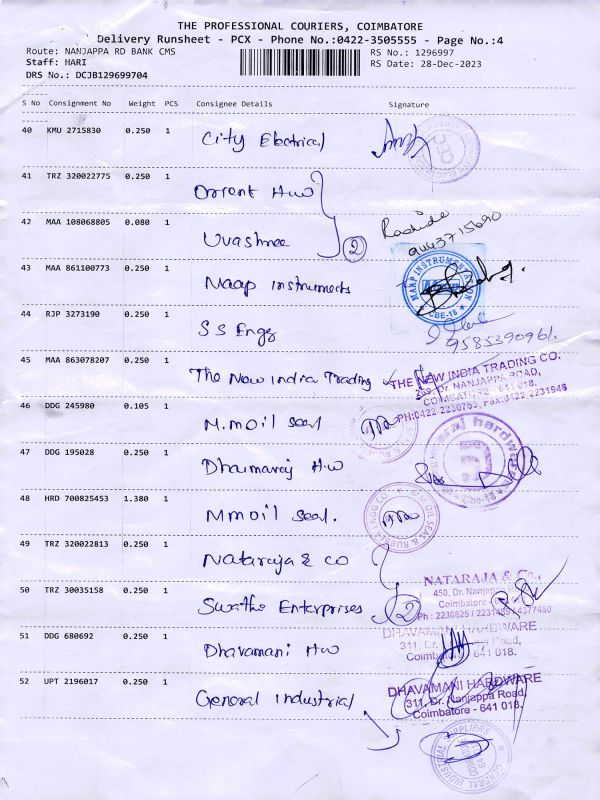 THE PROFESSIONAL COURIERS, COIMBATORE
Delivery Runsheet - PCX - Phone No.:0422-3505555 - Page No.:4
Route: NANJAPPA RD BANK CMS
RS No.: 1296997
Staff: HARI
RS Date: 28-Dec-2023
DRS No.: DCJB129699704
S No Consignment No Weight PCS Consignee Details Signature
40 KMU 2715830 0.250 1 City Electrical
CEC
41 TRZ 320022775 0.250 1 Orient H/w
42 MAA 108068805 0.080 1 Uvashree 2
9443715690
43 MAA 861100773 0.250 1 Naap instruments
MAAP INSTRUMENTATION
CBE-18
44 RJP 3273190 0.250 1 S S Engg
9585390961
45 MAA 863078207 0.250 1 The New India Trading
THE NEW INDIA TRADING CO.
269, Dr. NANJAPPA ROAD,
COIMBATORE - 641 018.
PH:0422-2230763, Fax:0422-2231946
46 DDG 245980 0.105 1 M.M oil seal
47 DDG 195028 0.250 1 Dharmaraj H/w
Dharmaraj hardwares
Cbe-18
48 HRD 700825453 1.380 1 M m oil seal.
MM OIL SEAL & RUBBER ENGG CO
49 TRZ 320022813 0.250 1 Nataraja & co
NATARAJA & Co.,
450, Dr. Nanjappa
Coimbatore
50 TRZ 30035158 0.250 1 Swathi Enterprises 2
Ph : 2230825 / 2231489 / 4377480
51 DDG 680692 0.250 1 Dhavamani H/w
DHAVAMANI HARDWARE
311, Dr. Nanjappa Road,
Coimbatore - 641 018.
52 UPT 2196017 0.250 1 General Industrial
DHAVAMANI HARDWARE
311, Dr. Nanjappa Road,
Coimbatore - 641 018.
GENERAL INDUSTRIAL SUPPLIERS